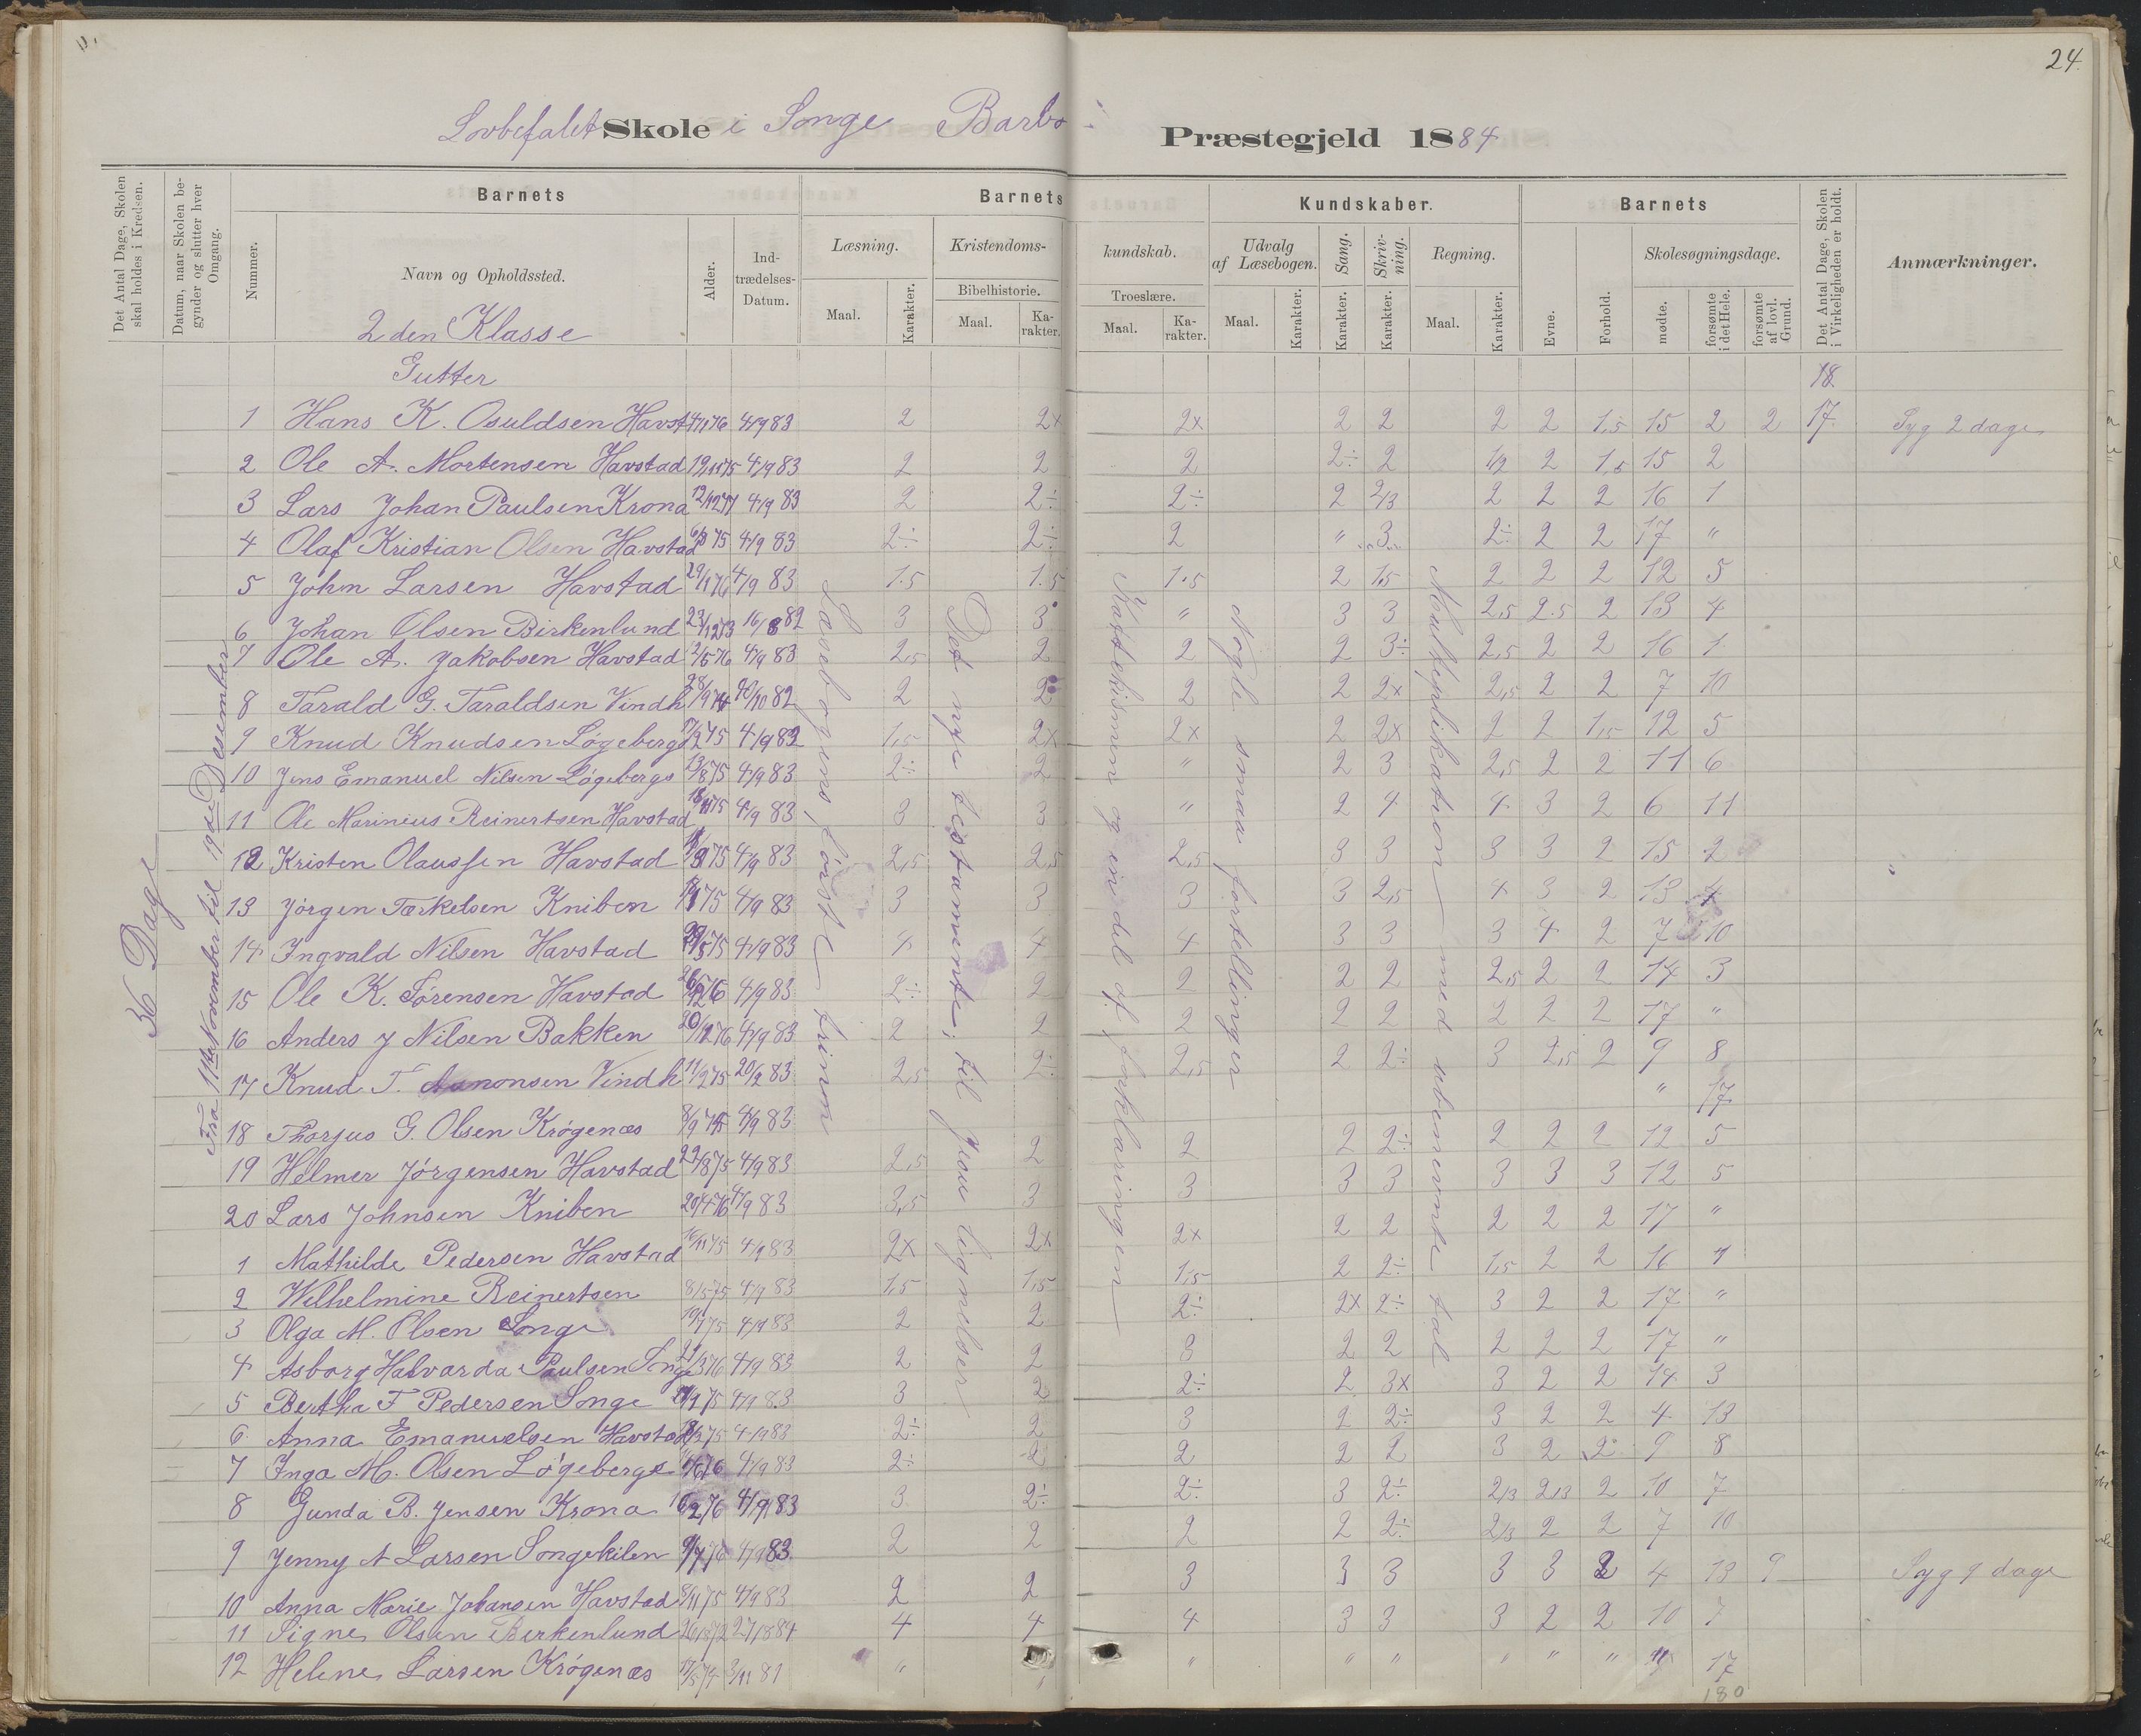 24.
Lovbefalet Skole i Songe Barbo Præstegjeld 1884
Det Antal Dage, Skolen skal holdes i Kredsen.
Datum, naar Skolen begynder og slutter hver Omgang.
Barnets
Nummer.
Navn og Opholdssted.
Alder.
Indtrædelses-Datum.
Barnets Kundskaber.
Læsning.
Maal.
Karakter.
Kristendoms-kundskab.
Bibelhistorie.
Maal.
Karakter.
Troeslære.
Maal.
Karakter.
Udvalg af Læsebogen.
Maal.
Karakter.
Sang.
Karakter.
Skrivning.
Karakter.
Regning.
Maal.
Karakter.
Barnets
Evne.
Forhold.
Skolesøgningsdage.
mødte.
forsømte i det Hele.
forsømte af lovl. Grund.
Det Antal Dage, Skolen i Virkeligheden er holdt.
Anmærkninger.
36 Dage
Fra 11te November til 19de Desember
2den Klasse
Gutter
18
1 Hans K. Osuldsen Havst 4/9 83 2 2x 2x 2 2 2 2 1,5 15 2 2 17 Syg 2 dage
2 Ole A. Mortensen Havstad 4/9 83 2 2 2 2÷ 2 2 1,5 15 2
3 Lars Johan Paulsen Krona 4/9 83 2 2÷ 2÷ 2 2/3 2 2 2 16 1
4 Olaf Kristian Olsen Havstad 4/9 83 2÷ 2÷ 2 " 3 2÷ 2 2 17 "
5 John Larsen Havstad 4/9 83 1.5 1.5 1.5 2 1,5 2 2 2 12 5
6 Johan Olsen Birkenlund 16/8 82 3 3 " 3 3 2,5 2.5 2 13 4
7 Ole A. Jakobsen Havstad 2/5 76 4/9 83 2,5 2 2 2 3÷ 2,5 2 2 16 1
8 Tarald G. Taraldsen Vindh 2 2 2 2 2x 2,5 2 2 7 10
9 Knud Knudsen Løgeberg 1,5 2x 2x 2 2x 2 2 1,5 12 5
10 Jens Emanuel Nilsen Løgeberg 13/8 75 4/9 83 2÷ 2 " 2 3 2,5 2 2 11 6
11 Ole Marinius Reinertsen Havstad 4/9 83 3 3 " 2 4 4 3 2 6 11
12 Kristen Olaussen Havstad 4/9 83 2,5 2,5 2,5 3 3 3 3 2 15 2
13 Jørgen Tærkelsen Kniben 4/9 83 3 3 3 3 2,5 4 3 2 13 4
14 Ingvald Nilsen Havstad 4/9 83 4 4 4 3 3 3 4 2 7 10
15 Ole K. Sørensen Havstad 4/9 83 2÷ 2 2 2 2 2,5 2 2 14 3
16 Anders J Nilsen Bakken 4/9 83 2 2 2 2 2 2 2 2 17 "
17 Knud T. Vindh 11/2 75 20/2 83 2,5 2÷ 2,5 2 2÷ 3 2,5 2 9 8
18 Thorjus G. Olsen Krøgenæs 4/9 83 " 17
19 Helmer Jørgensen Havstad 22/8 75 4/9 83 2,5 2 2 2 2÷ 2 2 2 12 5
20 Lars Johnsen Kniben 20/4 76 4/9 83 3,5 3 3 3 3 3 3 3 12 5
1 Mathilde Pedersen Havstad 4/9 83 2x 2x 2x 2 2 2 2 2 17 "
2 Wilhelmine Reinertsen 8/5 75 4/9 83 1,5 1,5 1,5 2 2÷ 1,5 2 2 16 1
3 Olga M. Olsen Songe 4/9 83 2 2 2÷ 2x 2÷ 3 2 2 17 "
4 Asborg Halvarda Paulsen Songe 4/9 83 2 2 3 2 2 2 2 2 17 "
5 Bertha F Pedersen Songe 4/9 83 3 2 2÷ 2 3x 3 2 2 14 3
6 Anna Emanuelsen Havstad 4/9 83 2÷ 2 3 2 2÷ 3 2 2 4 13
7 Inga M. Olsen Løgeberg 4/9 83 2÷ 2 2 2 2 3 2 2 9 8
8 Gunda B. Jensen Krona 4/9 83 3 2÷ 2÷ 3 2÷ 2/3 2/3 2 10 7
9 Jenny A Larsen Songekilen 4/9 83 2 2 2 2 2÷ 2/3 2 2 7 10
10 Anna Marie Johansen Havstad 8/11 75 4/9 83 2 2 3 3 3 3 3 2 4 13 9 Syg 9 dage
11 Signe Olsen Birkenlund 4 4 4 3 3 3 2 2 10 7
12 Helene Larsen Krøgenæs 3/11 81 " " " " " " " 17
180
Læsebogens første trin
Det nye testamente; til Jesu lignelser
Kattekismen og en del af forklaringen
Nogle smaa fortellinger
Multeplikation med ubenevnte tal